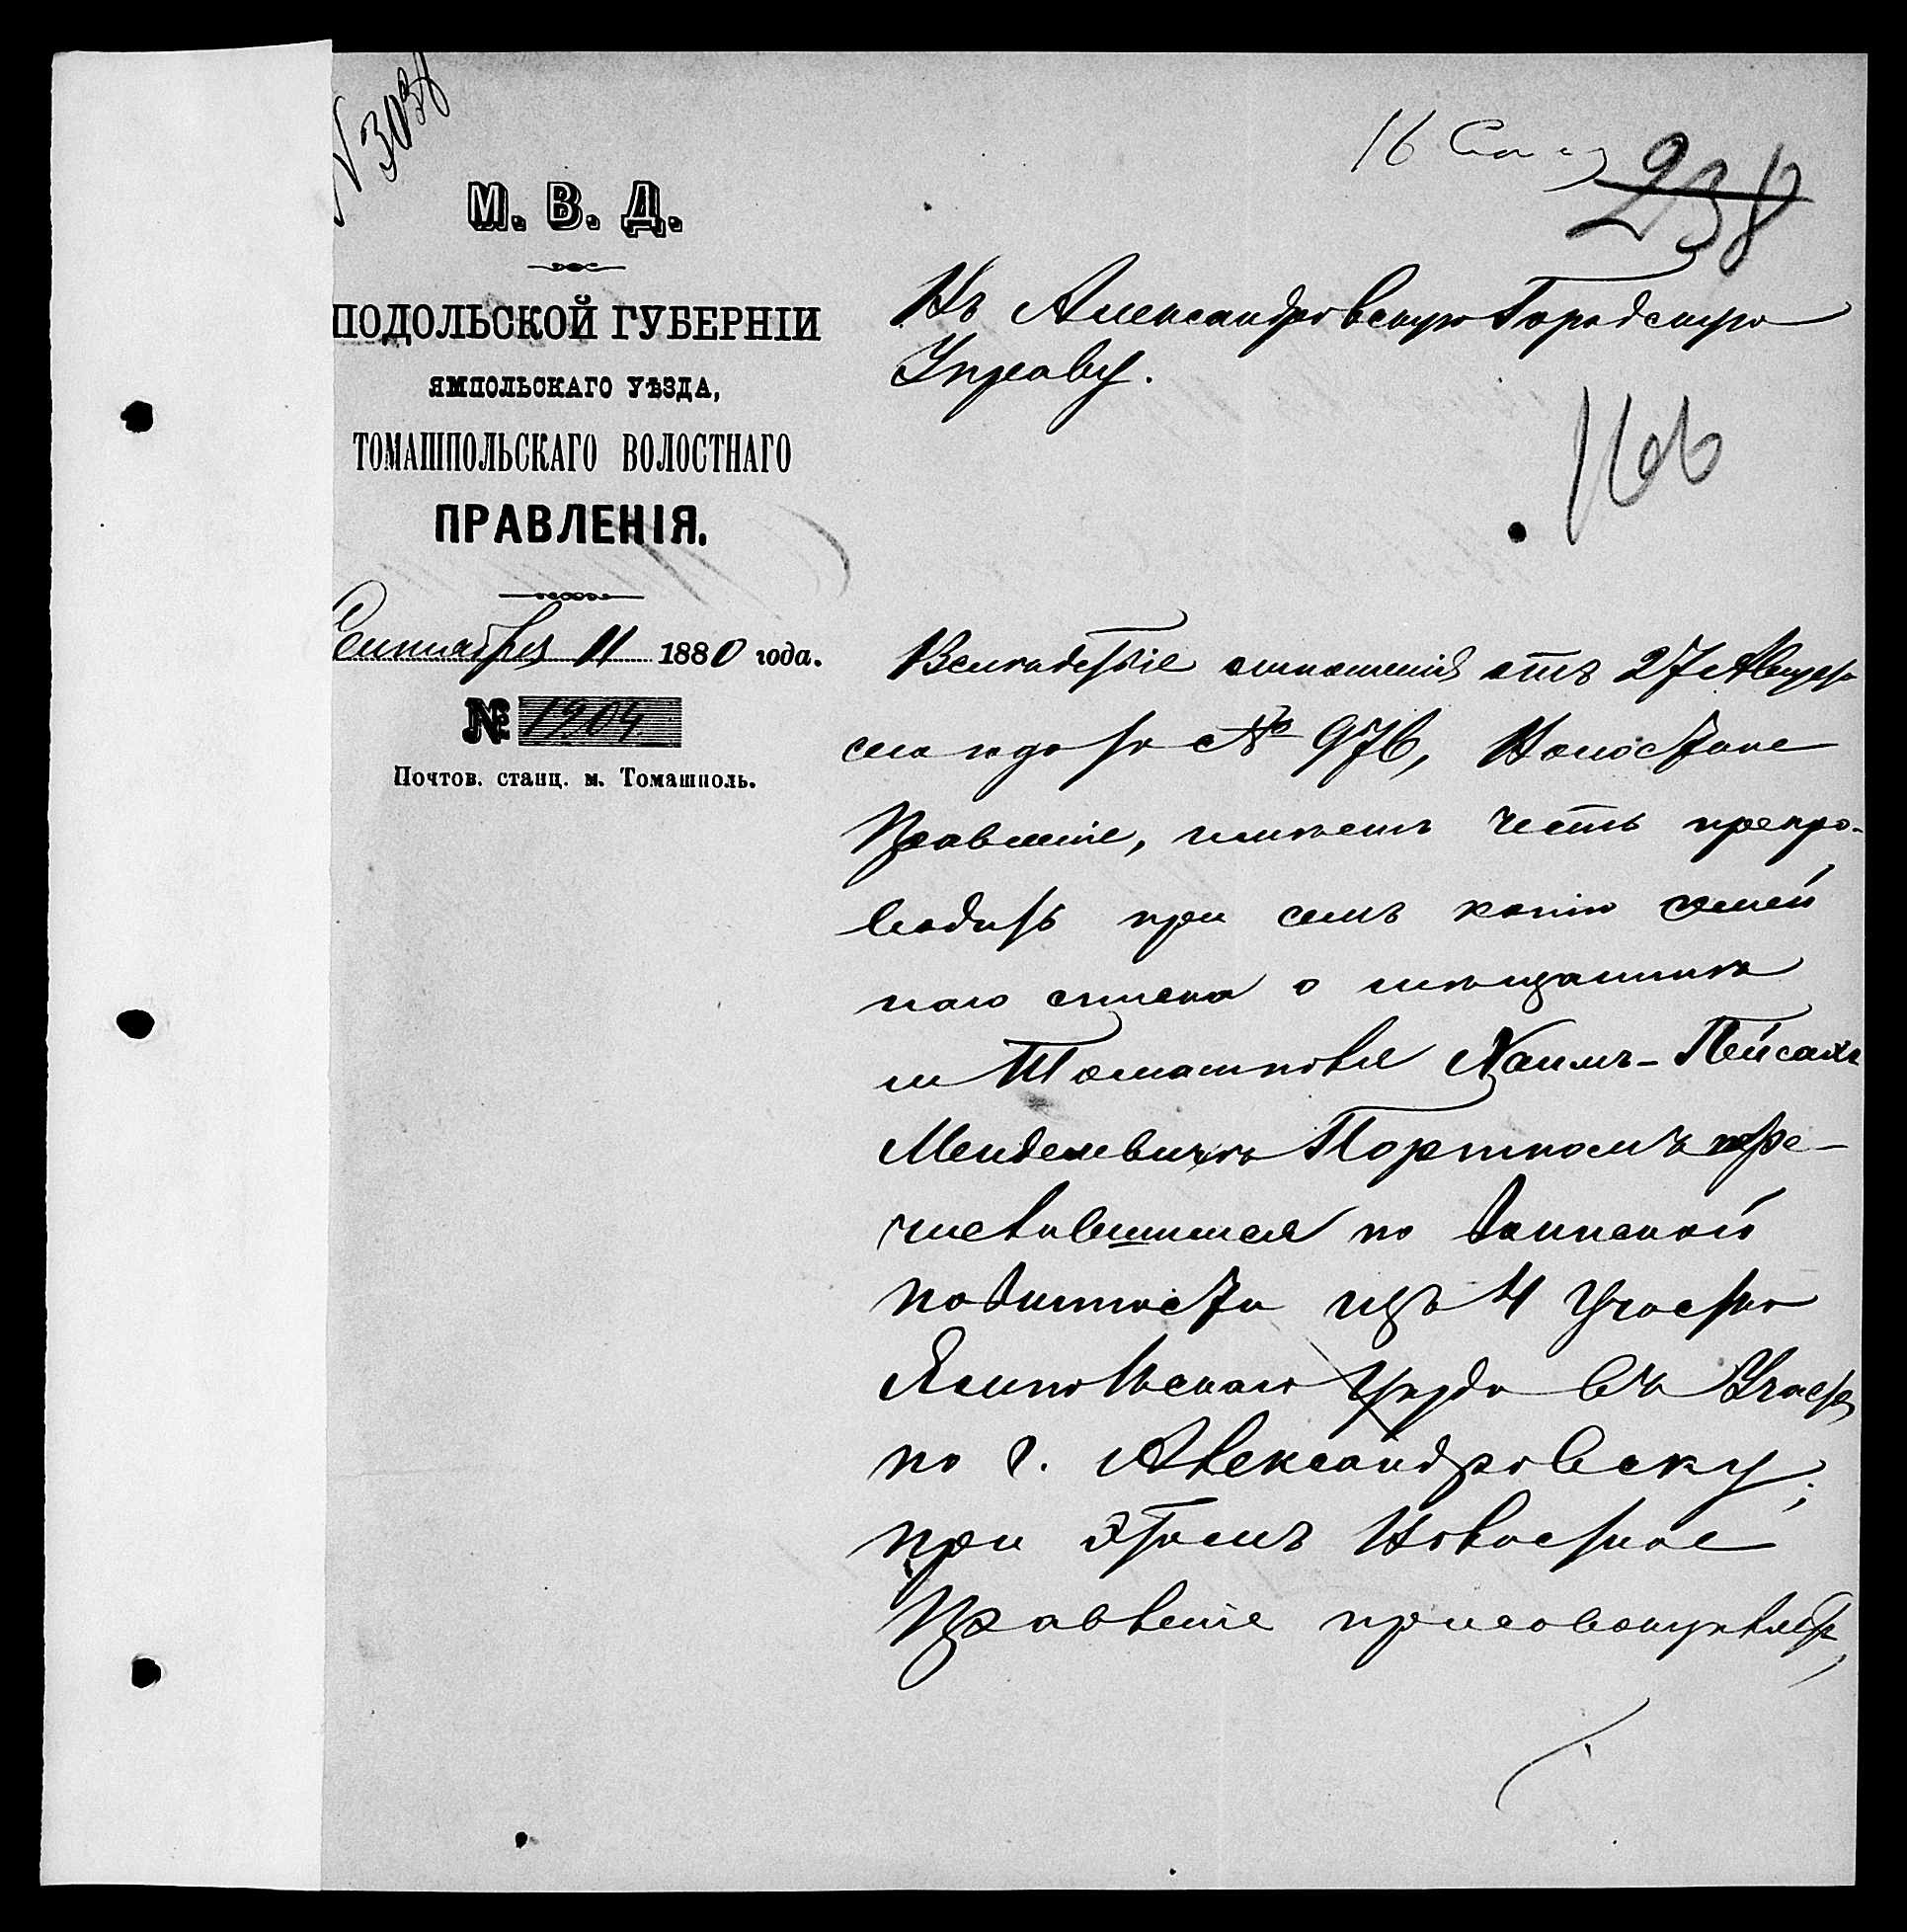 № 3038
16 Сен
238
М. В. Д.
ПОДОЛЬСКОЙ ГУБЕРНІИ
ЯМПОЛЬСКАГО УѢЗДА,
ТОМАШПОЛЬСКАГО ВОЛОСТНАГО
ПРАВЛЕНІЯ.
Сентября 11 1880 года.
№ 1904
Почтов. станц. м. Томашполь.
Въ Александровскую Городскую
Управу.
166
Вслѣдствіе отношенія отъ 27 Августа
сего года за № 976, Волостное
Правленіе, имѣетъ честь препро-
водить при семъ копію семей
наго списка о мѣщанинѣ
м Томашполя Хаимъ-Пейсахъ
Менделевичѣ Портномъ пере-
числившимся по воинской
повинности изъ 4 Участка
Ямпольскаго Уѣзда въ Участ
по г. Александровску;
при этомъ Волостное
Правленіе присовокупляетъ,